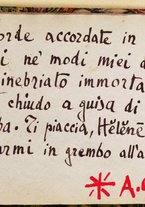 orde accordate in
i ne' modi miei d
inebriato immorta
chiudo a guisa di
ba. Ti piaccia, Hélène
armi in grembo all'a
* A.